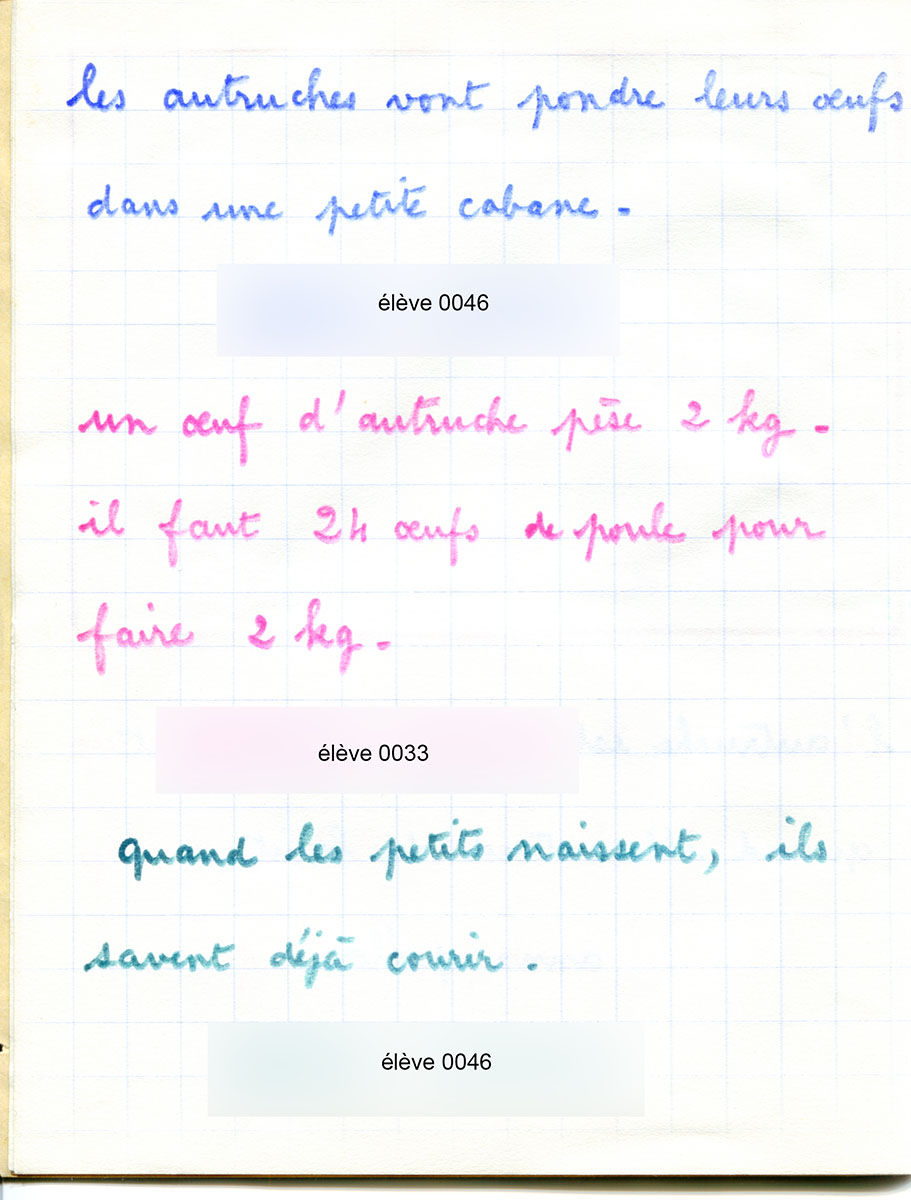 les autruches vont pondre leurs œufs
dans une petite cabane.
élève 0046
un œuf d'autruche pèse 2 kg.
il faut 24 œufs de poule pour
faire 2 kg.
élève 0033
quand les petits naissent, ils
savent déjà courir.
élève 0046